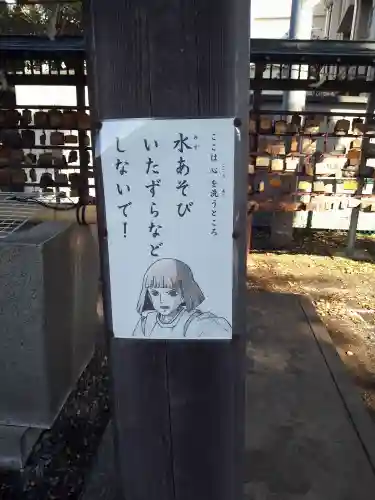 ここは心を洗うところ
水あそび
いたずらなど
しないで！